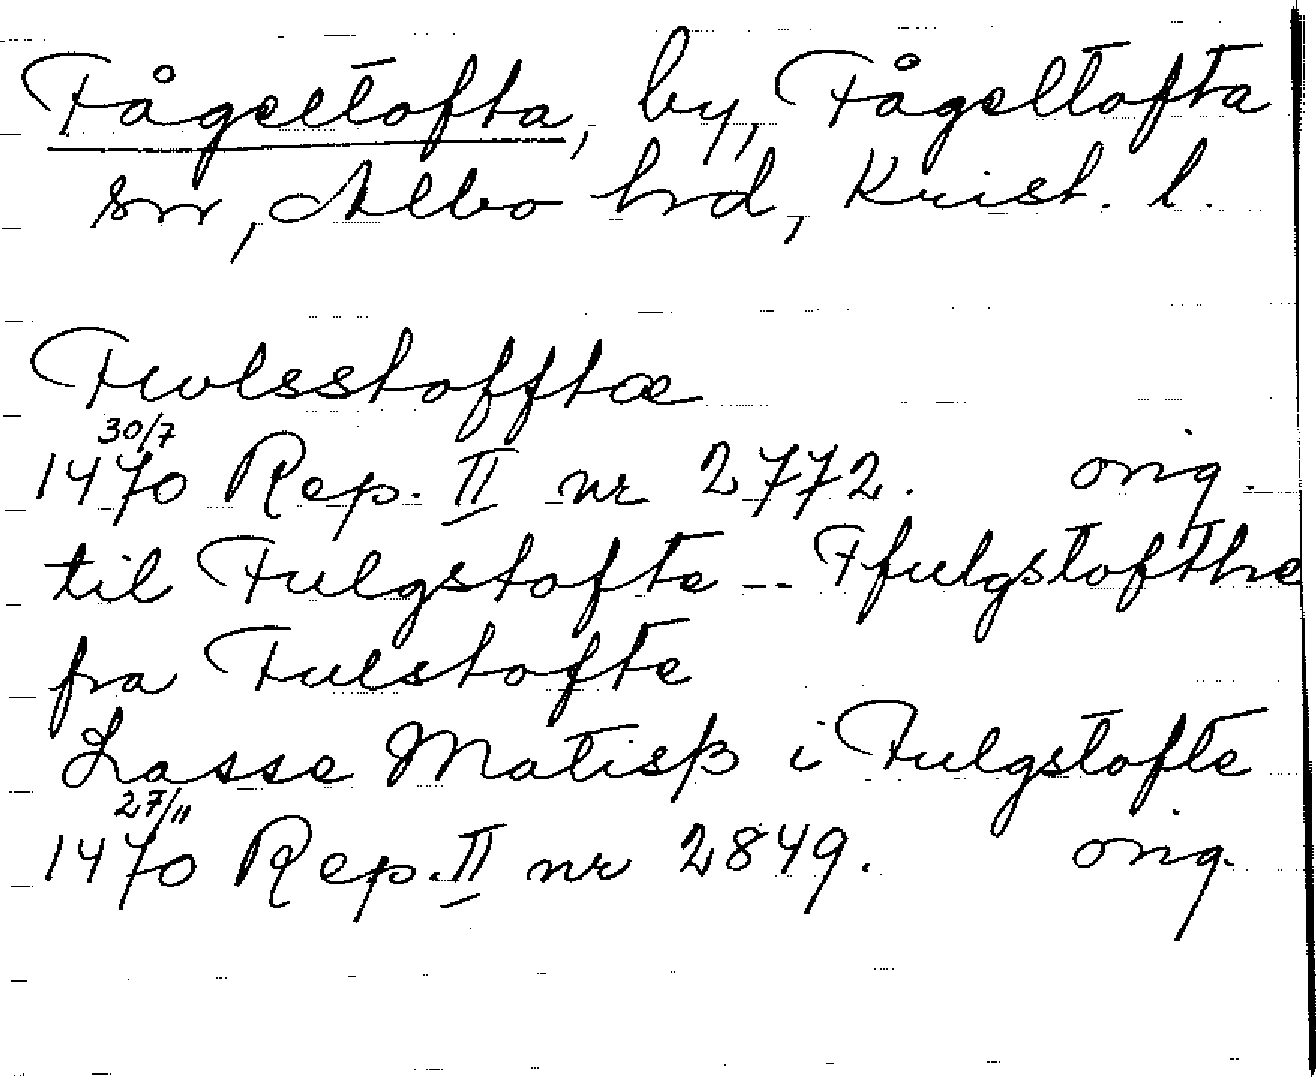 Fågeltofta, by, Fågeltofta
sn, Albo hrd, Krist. l.
Fwlsstofftæ
30/7
1470 Rep. II nr 2772. orig.
til Fulgstofte -- Ffulgstofthe
fra Fulstofte
Lasse Matisß i Fulgstofte
27/11
1470 Rep. II nr 2849. orig.